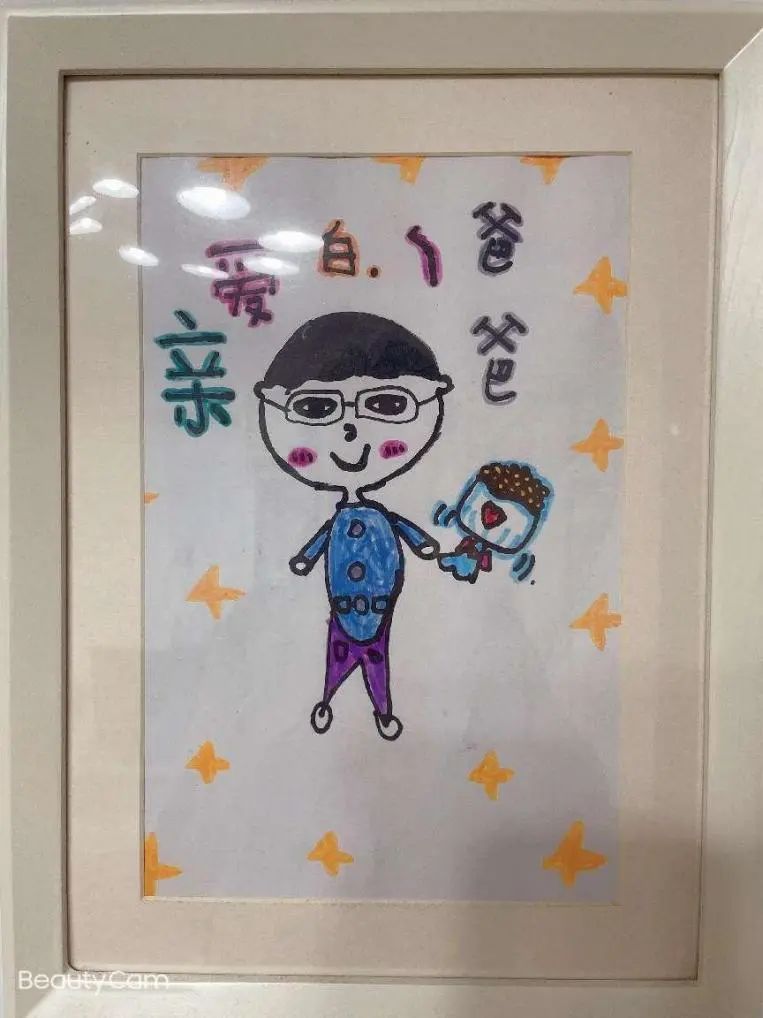 亲爱的爸爸
BeautyCam